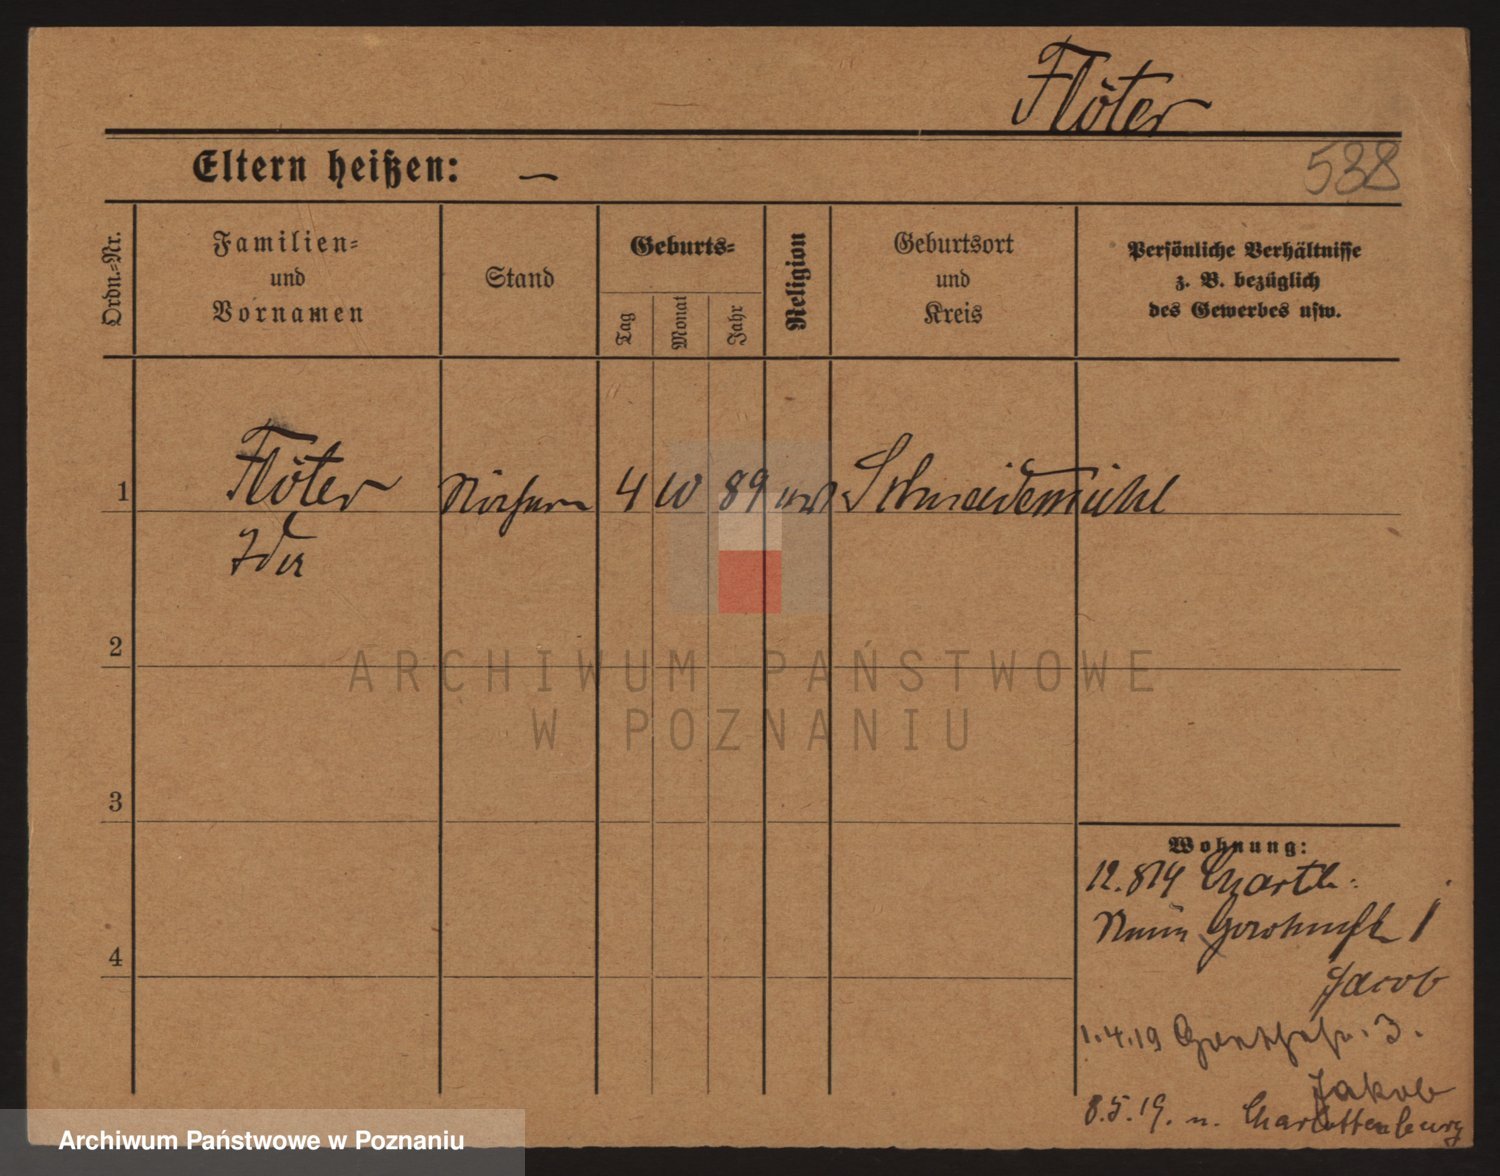 Flöter
Eltern heißen: —
538
Ordn.-Nr.
Familien-
und
Vornamen
Stand
Geburts-
Tag
Monat
Jahr
Religion
Geburtsort
und
Kreis
Persönliche Verhältnisse
z. B. bezüglich
des Gewerbes usw.
1
Flöter
4 10 89
Schneidemühl
Ida
2
ARCHIWUM PAŃSTWOWE
W POZNANIU
3
Wohnung:
12.814
1
4
Jacob
1.4.19 3.
Jakob
8.5.19. n. Charlottenburg
Archiwum Państwowe w Poznaniu